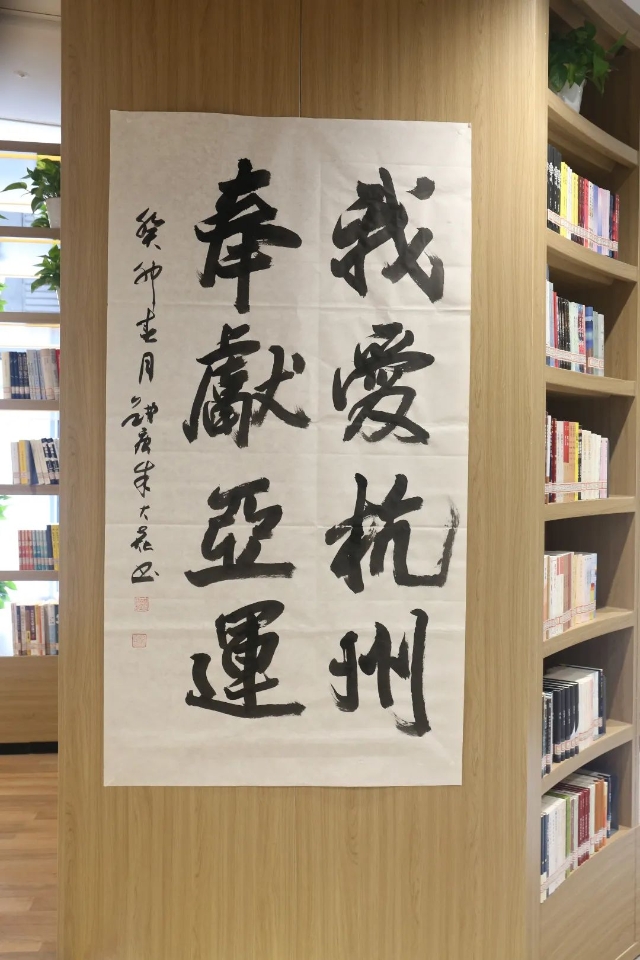 我愛杭州
奉獻亞運
癸卯春月錢唐朱大飛書